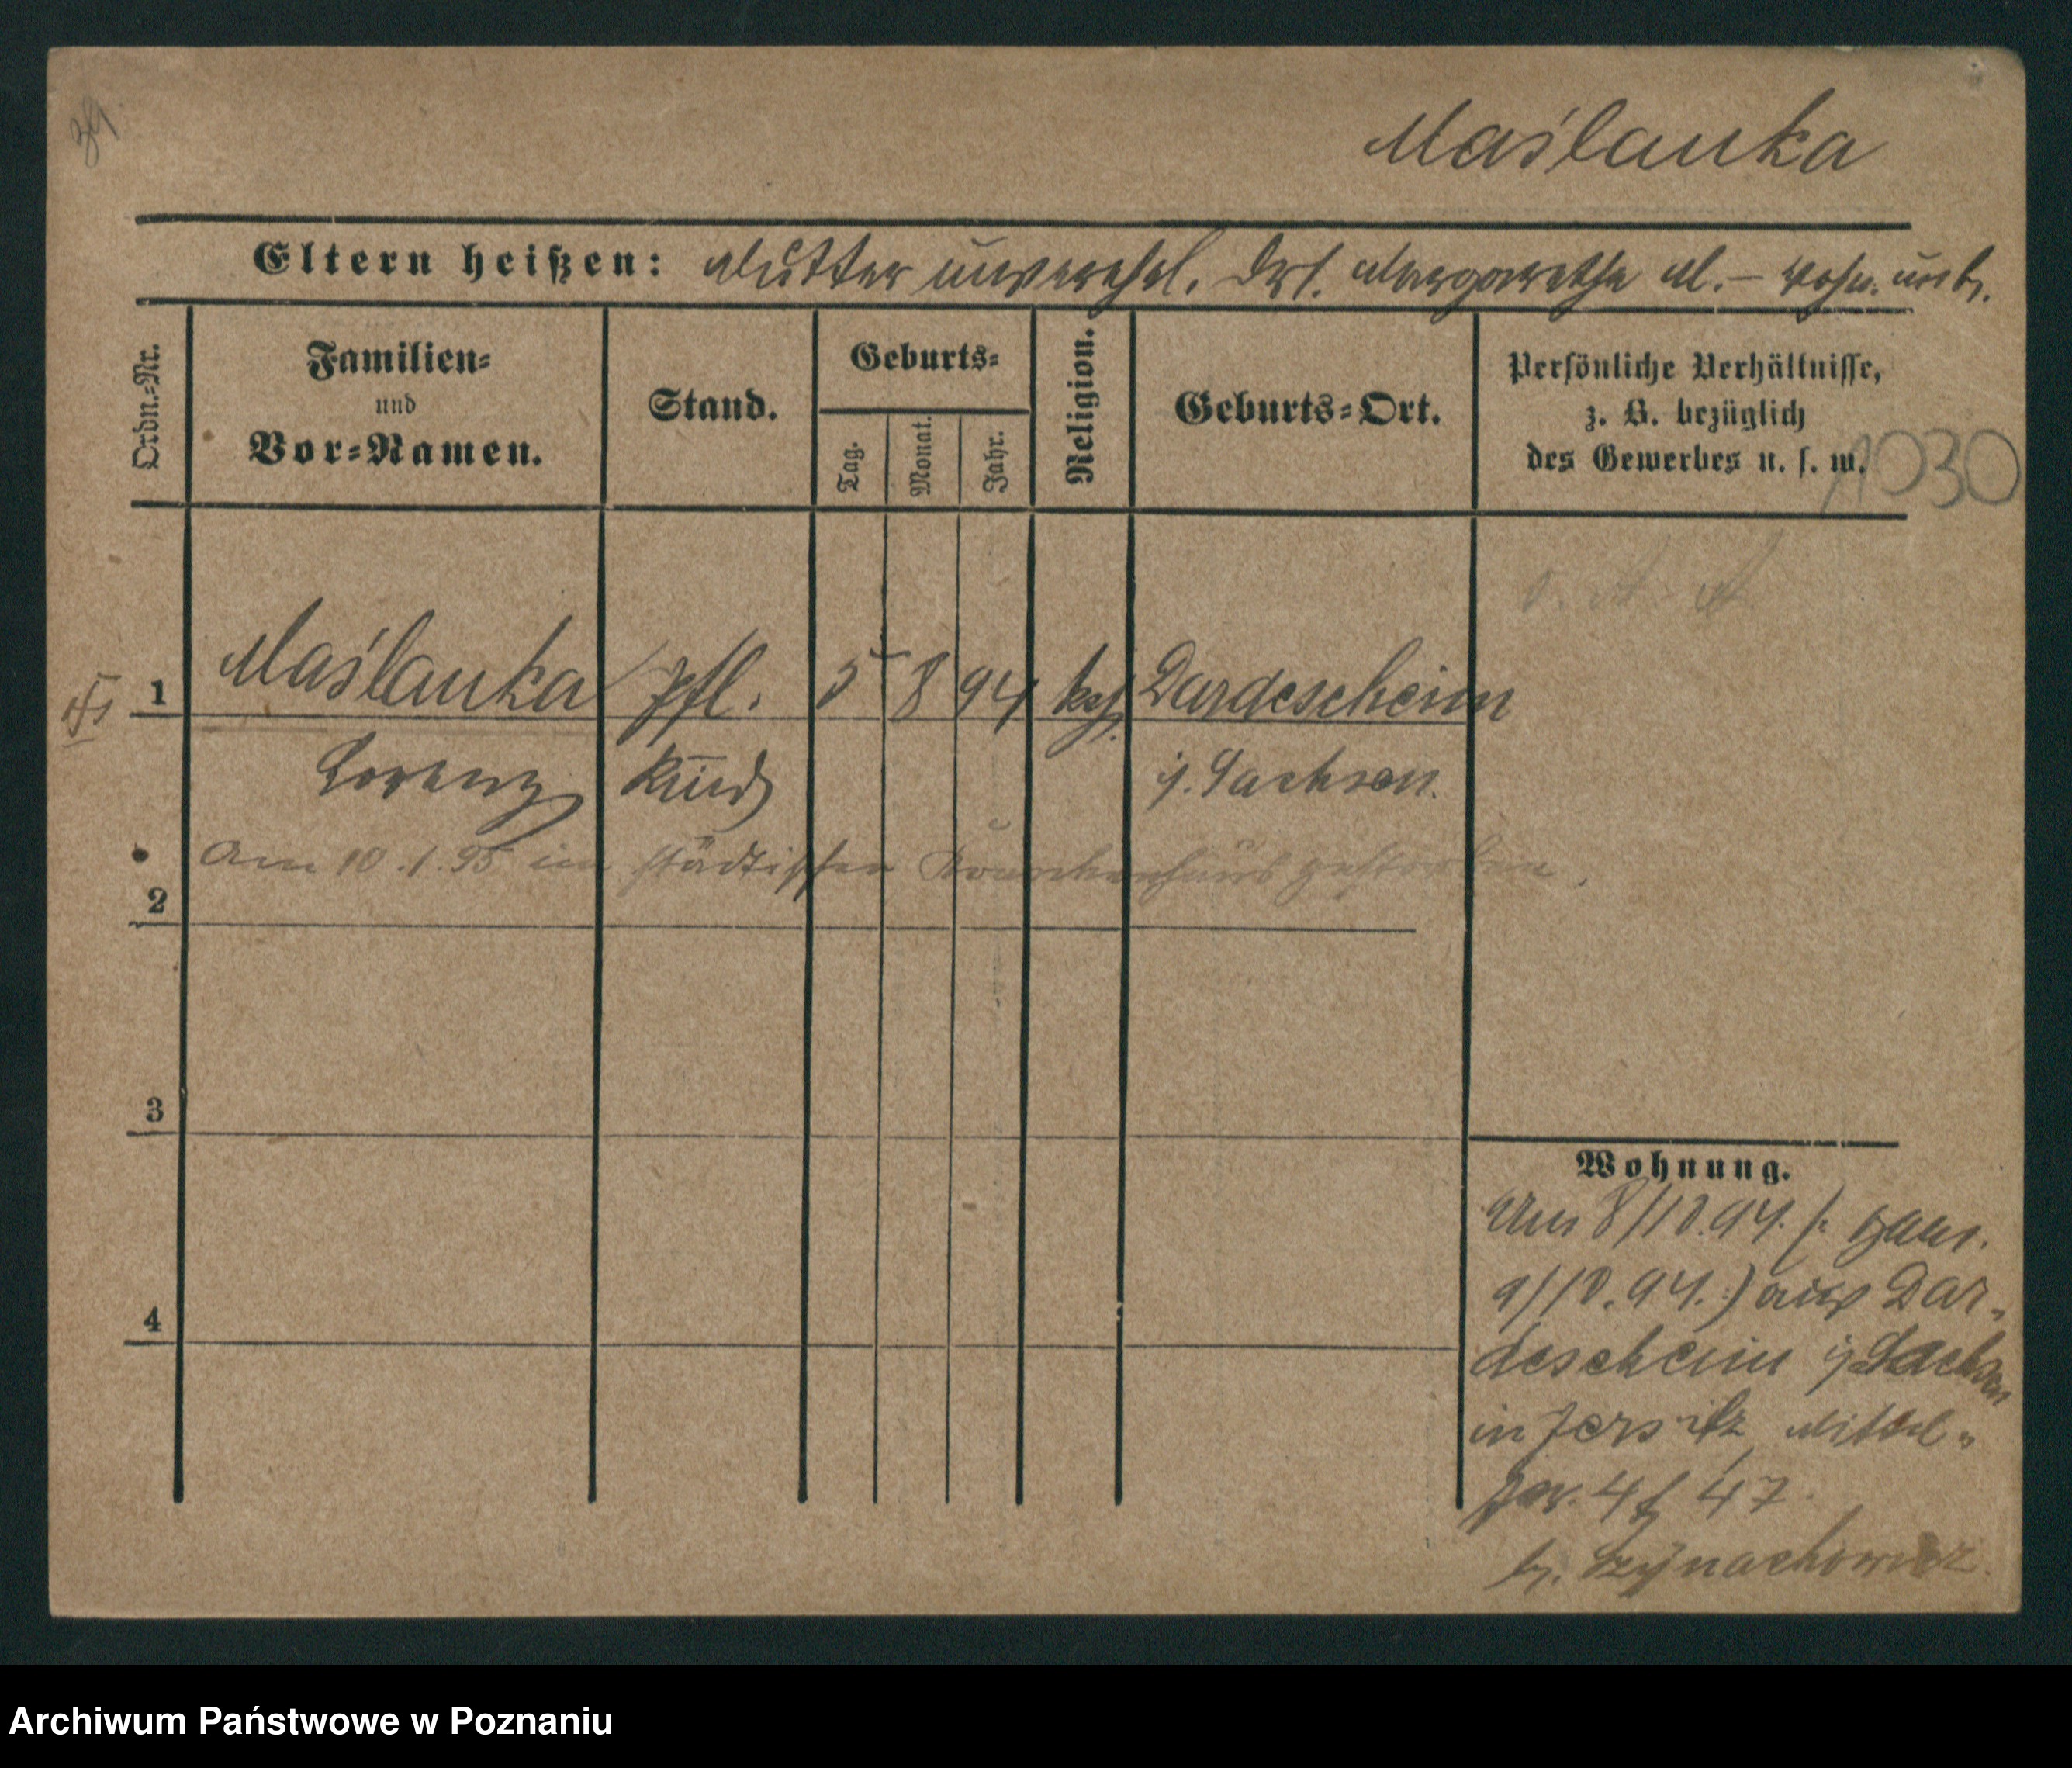 39
Maślanka
Eltern heißen: Mutter unverehel. Margarethe M. – wohn. unb.
Ordn.-Nr.
Familien-
und
Vor-Namen.
Stand.
Geburts-
Tag.
Monat.
Jahr.
Religion.
Geburts-Ort.
Persönliche Verhältnisse,
z. B. bezüglich
des Gewerbes u. s. w.
1030
1 Maślanka Pfl. 5 8 94 kath. Dardescheim
Lorenz Kind i/. Sachsen.
Am 10.1.95 im städtischen Krankenhaus gestorben.
2
3
4
Wohnung.
Am 8/10.94. (:
9/10.94.:) aus Dar-
descheim i/Sachsen
in Jersitz, Mittel-
47.
b/.
Archiwum Państwowe w Poznaniu